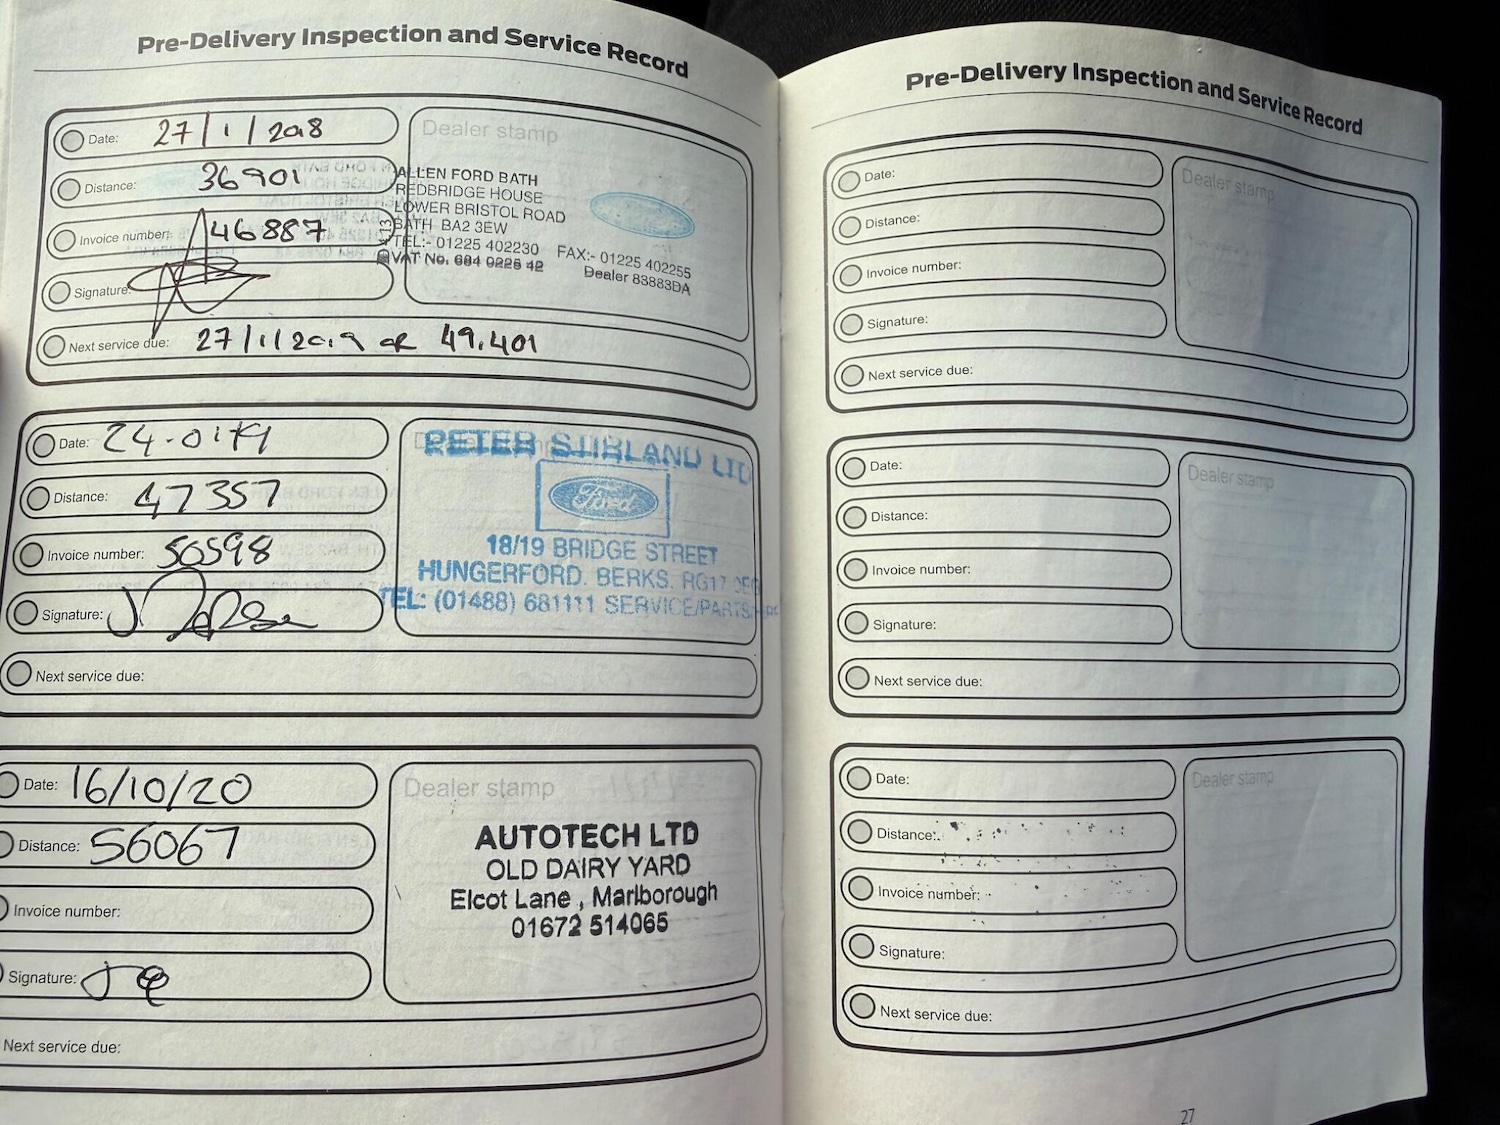 Pre-Delivery Inspection and Service Record
Date: 27/1/2018
Distance: 36901
Invoice number: 46887
Signature:
Next service due: 27/1/2019 or 49.401
Dealer stamp
ALLEN FORD BATH
REDBRIDGE HOUSE
LOWER BRISTOL ROAD
BATH BA2 3EW
TEL:- 01225 402230 FAX:- 01225 402255
VAT No. 684 0225 42 Dealer 83883DA
Date: 24-01-19
Distance: 47357
Invoice number: 50598
Signature:
Next service due:
Dealer stamp
PETER STIRLAND LTD
Ford
18/19 BRIDGE STREET
HUNGERFORD. BERKS. RG17
TEL: (01488) 681111 SERVICE/PARTS
Date: 16/10/20
Distance: 56067
Invoice number:
Signature:
Next service due:
Dealer stamp
AUTOTECH LTD
OLD DAIRY YARD
Elcot Lane , Marlborough
01672 514065
Pre-Delivery Inspection and Service Record
Date:
Distance:
Invoice number:
Signature:
Next service due:
Dealer stamp
Date:
Distance:
Invoice number:
Signature:
Next service due:
Dealer stamp
Date:
Distance:
Invoice number:
Signature:
Next service due:
Dealer stamp
27